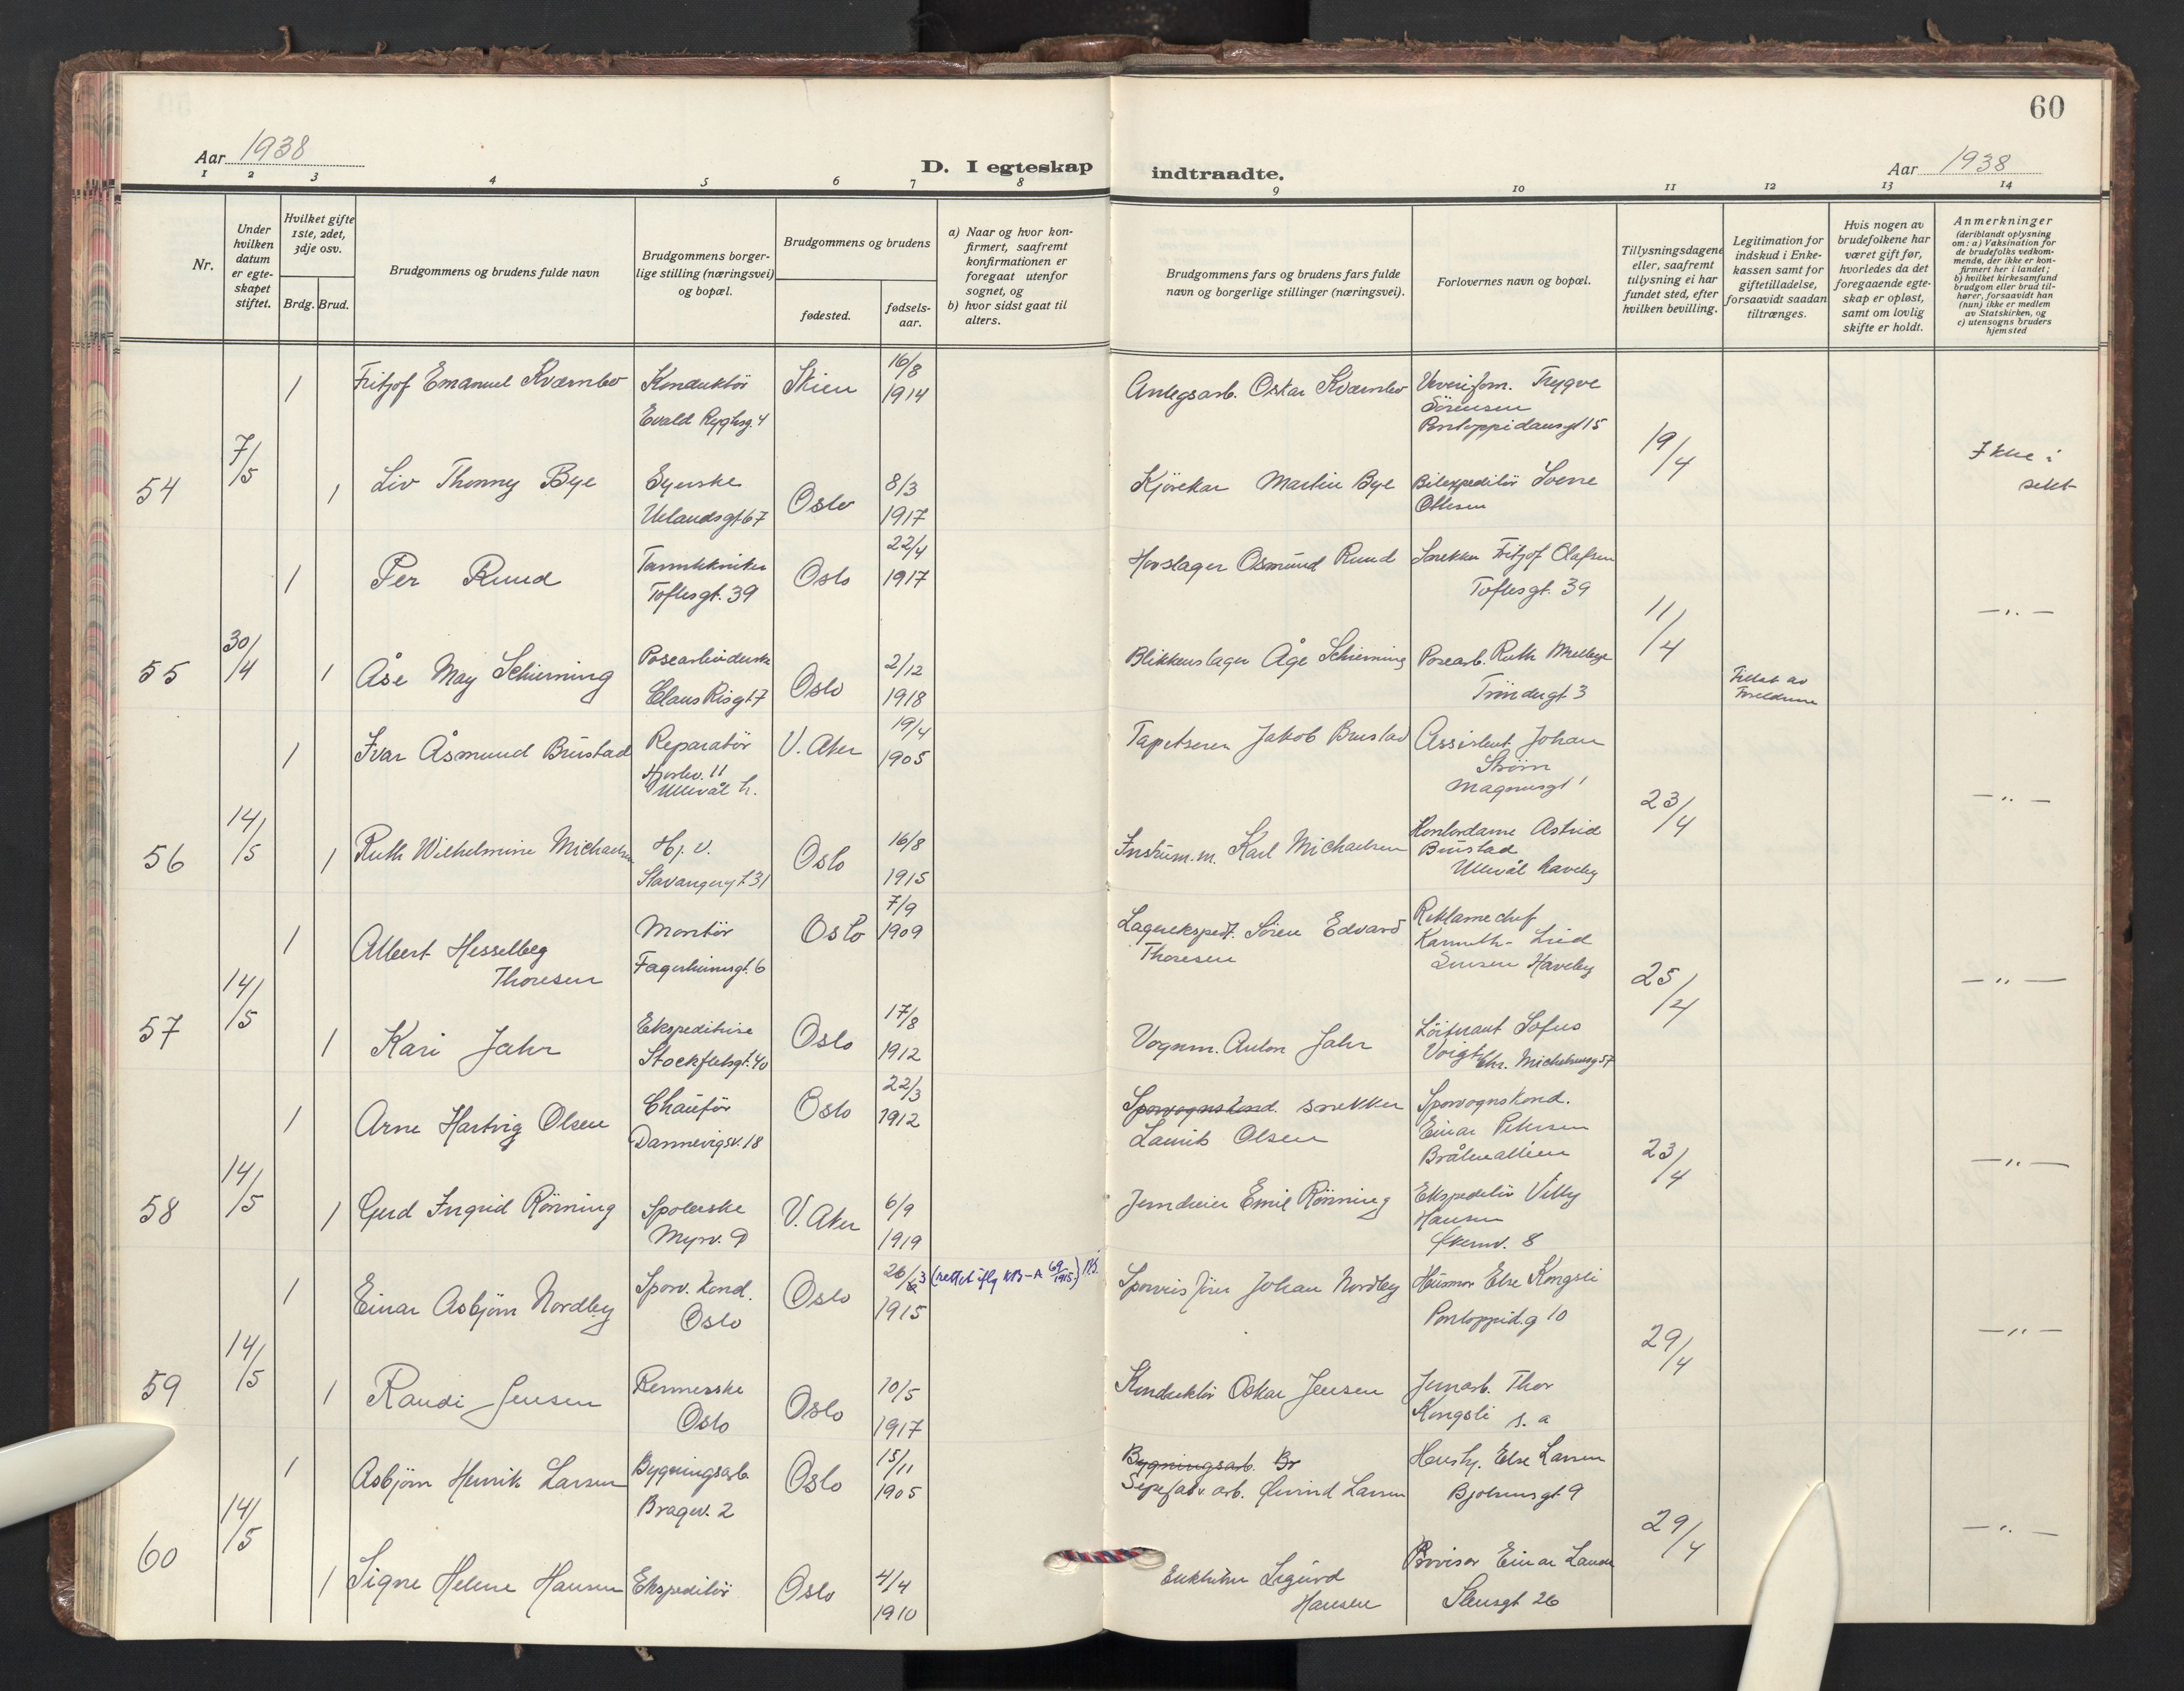 60
Aar 1938
D. I egteskap
indtraadte.
Aar 1938
1 2 3 4 5 6 7 8 9 10 11 12 13 14
Nr.
Under hvilken datum er egteskapet stiftet.
Hvilket gifte 1ste, 2det, 3dje osv.
Brdg. Brud.
Brudgommens og brudens fulde navn
Brudgommens borgerlige stilling (næringsvei) og bopæl.
Brudgommens og brudens
fødested.
fødselsaar.
a) Naar og hvor konfirmert, saafremt konfirmationen er foregaat utenfor sognet, og
b) hvor sidst gaat til alters.
Brudgommens fars og brudens fars fulde navn og borgerlige stillinger (næringsvei).
Forlovernes navn og bopæl.
Tillysningsdagene eller, saafremt tillysning ei har fundet sted, efter hvilken bevilling.
Legitimation for indskud i Enkekassen samt for giftetilladelse, forsaavidt saadan tiltrænges.
Hvis nogen av brudefolkene har været gift før, hvorledes da det foregaaende egteskap er opløst, samt om lovlig skifte er holdt.
Anmerkninger (deriblandt oplysning om: a) Vaksination for de brudefolks vedkommende, der ikke er konfirmert her i landet; b) hvilket kirkesamfund brudgom eller brud tilhører, forsaavidt han (hun) ikke er medlem av Statskirken, og c) utensogns bruders hjemsted
1 Fritjof Emanuel Kværnbo Konduktör Evald Ryghsg. 4 Skien 16/8 1914 Anlegsarb. Oskar Kværnbo Ververifom. Trygve Sörensen Pontoppidansgt 15
54 7/5 1 Liv Thonny Bye Syerske Uelandsgt 67 Oslo 8/3 1917 Kjörekar Martin Bye Bilexpeditör Sverre Ottesen 19/4 Ikke i sekt
1 Per Ruud Tanntekniker Toftesgt. 39 Oslo 22/4 1917 Hovslager Osmund Ruud Snekker Fritjof Olafsen Toftesgt. 39
55 30/4 1 Åse May Schierning Posearbiderske Claus Risgt 7 Oslo 2/12 1918 Blikkenslager Åge Schierning Posearb. Ruth Melbye Tröndergt 3 11/4 Tillat av Foreldrene — „ —
1 Ivar Åsmund Brustad Reparatör 11 Ullevål h. V. Aker 19/4 1905 Tapetserer Jakob Brustad Assistent Johan Ström Magnusgt 1
56 14/5 1 Ruth Wilhelmine Michaelsen Hj. v. Stavangergt 31 Oslo 16/8 1915 Instrum. m. Karl Michaelsen Kontordame Astrid Brustad Ullevål haveby 23/4 — „ —
1 Albert Hesselberg Thoresen Montör Fagerheimsgt. 6 Oslo 7/9 1909 Lagerekspedt. Sören Edvard Thoresen Reklamechef Lind Sinsen Haveby
57 14/5 1 Kari Jahr Ekspeditrise Stockfletsgt. 40 Oslo 17/8 1912 Vognm. Anton Jahr Löitnant Sofus Voigt Chr. Michelsensg 57 25/4 — „ —
1 Arne Hartvig Olsen Chauför Dannevigsv. 18 Oslo 22/3 1912 Sporvognskond. snekker Laurits Olsen Sporvognskond. Einar Petersen Bråtenalléen
58 14/5 1 Gerd Ingrid Rönning Spolerske Myrv. 9 V. Aker 6/9 1919 Jerndreier Emil Rönning Ekspeditör Villy Hansen Økernv. 8 23/4 — „ —
1 Einar Asbjörn Nordby Sporv. kond. Oslo Oslo 26/3 1915 (rettet iflg KB-A 69/1915) Johan Nordby Husmor Else Kongsli Pontoppid.g 10
59 14/5 1 Randi Jensen Rennerske Oslo Oslo 10/5 1917 Konduktör Oskar Jensen Jernarb. Thor Kongsli s. a 29/4 — „ —
1 Asbjörn Henrik Larsen Bygningsarb. Bragev. 2 Oslo 15/11 1905 Bygningsarb. Br Sepefabr. arb. Øivind Larsen Hush. Else Larsen Bjølsensgt. 9
60 14/5 1 Signe Helene Hansen Ekspeditör Oslo 4/4 1910 Sigurd Hansen Provisor Einar Stensgt 26 29/4 — „ —